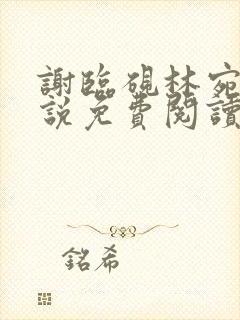 謝臨硯林宛
說免費閱讀
銘希